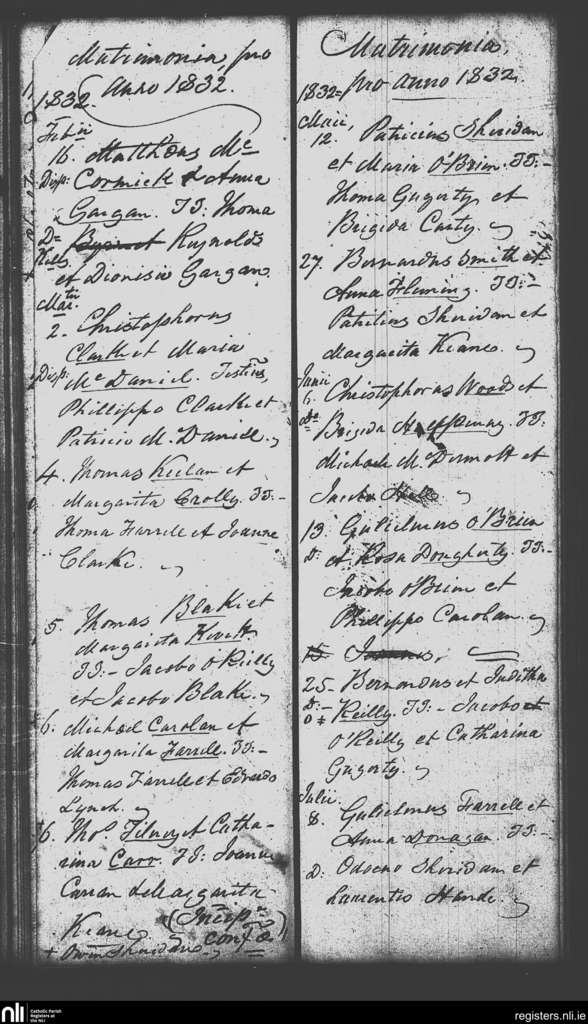 Matrimonia, pro
anno 1832.
1832.
Febii
16. Matthæus Mc
Disp: Cormick & Anna
Gargan. TT: Thoma
Reynolds
et Dionisio Gargan.
Mar.
2. Christophorus
Clark et Maria
Disp: Mc Daniel. Testius,
Phillippo Clark et
Patricio M. Daniell.
4. Thomas Keelan et
Margarita Crolly. TT:-
Thoma Farrell et Joanne
Clarke.
5. Thomas Blake et
Margarita
TT:- Jacobo O'Reilly
et Jacobo Blake.
6. Michael Carolan et
Margarita Farrell. TT:-
Thomas Farrell et Edvardo
Lynch.
6. Thos Tilney et Catha-
rina Carr. TT: Joanne
Curran & Margarita
Keane (Incip
+ Owen Sheridan confæ)
Matrimonia,
pro anno 1832.
1832=
Maii,
12. Patricius Sheridan
et Maria O'Brien. TT:-
Thoma Gugerty et
Brigida Carty.
27. Bernardus Smith et
Anna Fleming. TT:-
Patritius Sheridan et
Margarita Keane.
Junii
6. Christophorus Woods et
Brigida TT:
Michaele M. Dermott et
Jacobo
13. Gulielmus O'Brien
D: et Rosa Dougherty. TT:-
Jacobo O'Brien et
Phillippo Carolan.
25- Bernardus et Juditha
D:- Reilly. TT:- Jacobo
O'Reilly et Catharina
Gugorty.
Julii
8. Gulielmus Farrell et
Anna Donagan. TT:-
D: Odoeno Sheridan et
Laurentio Hande.
nli
Catholic Parish
Registers at
the NLI
registers.nli.ie